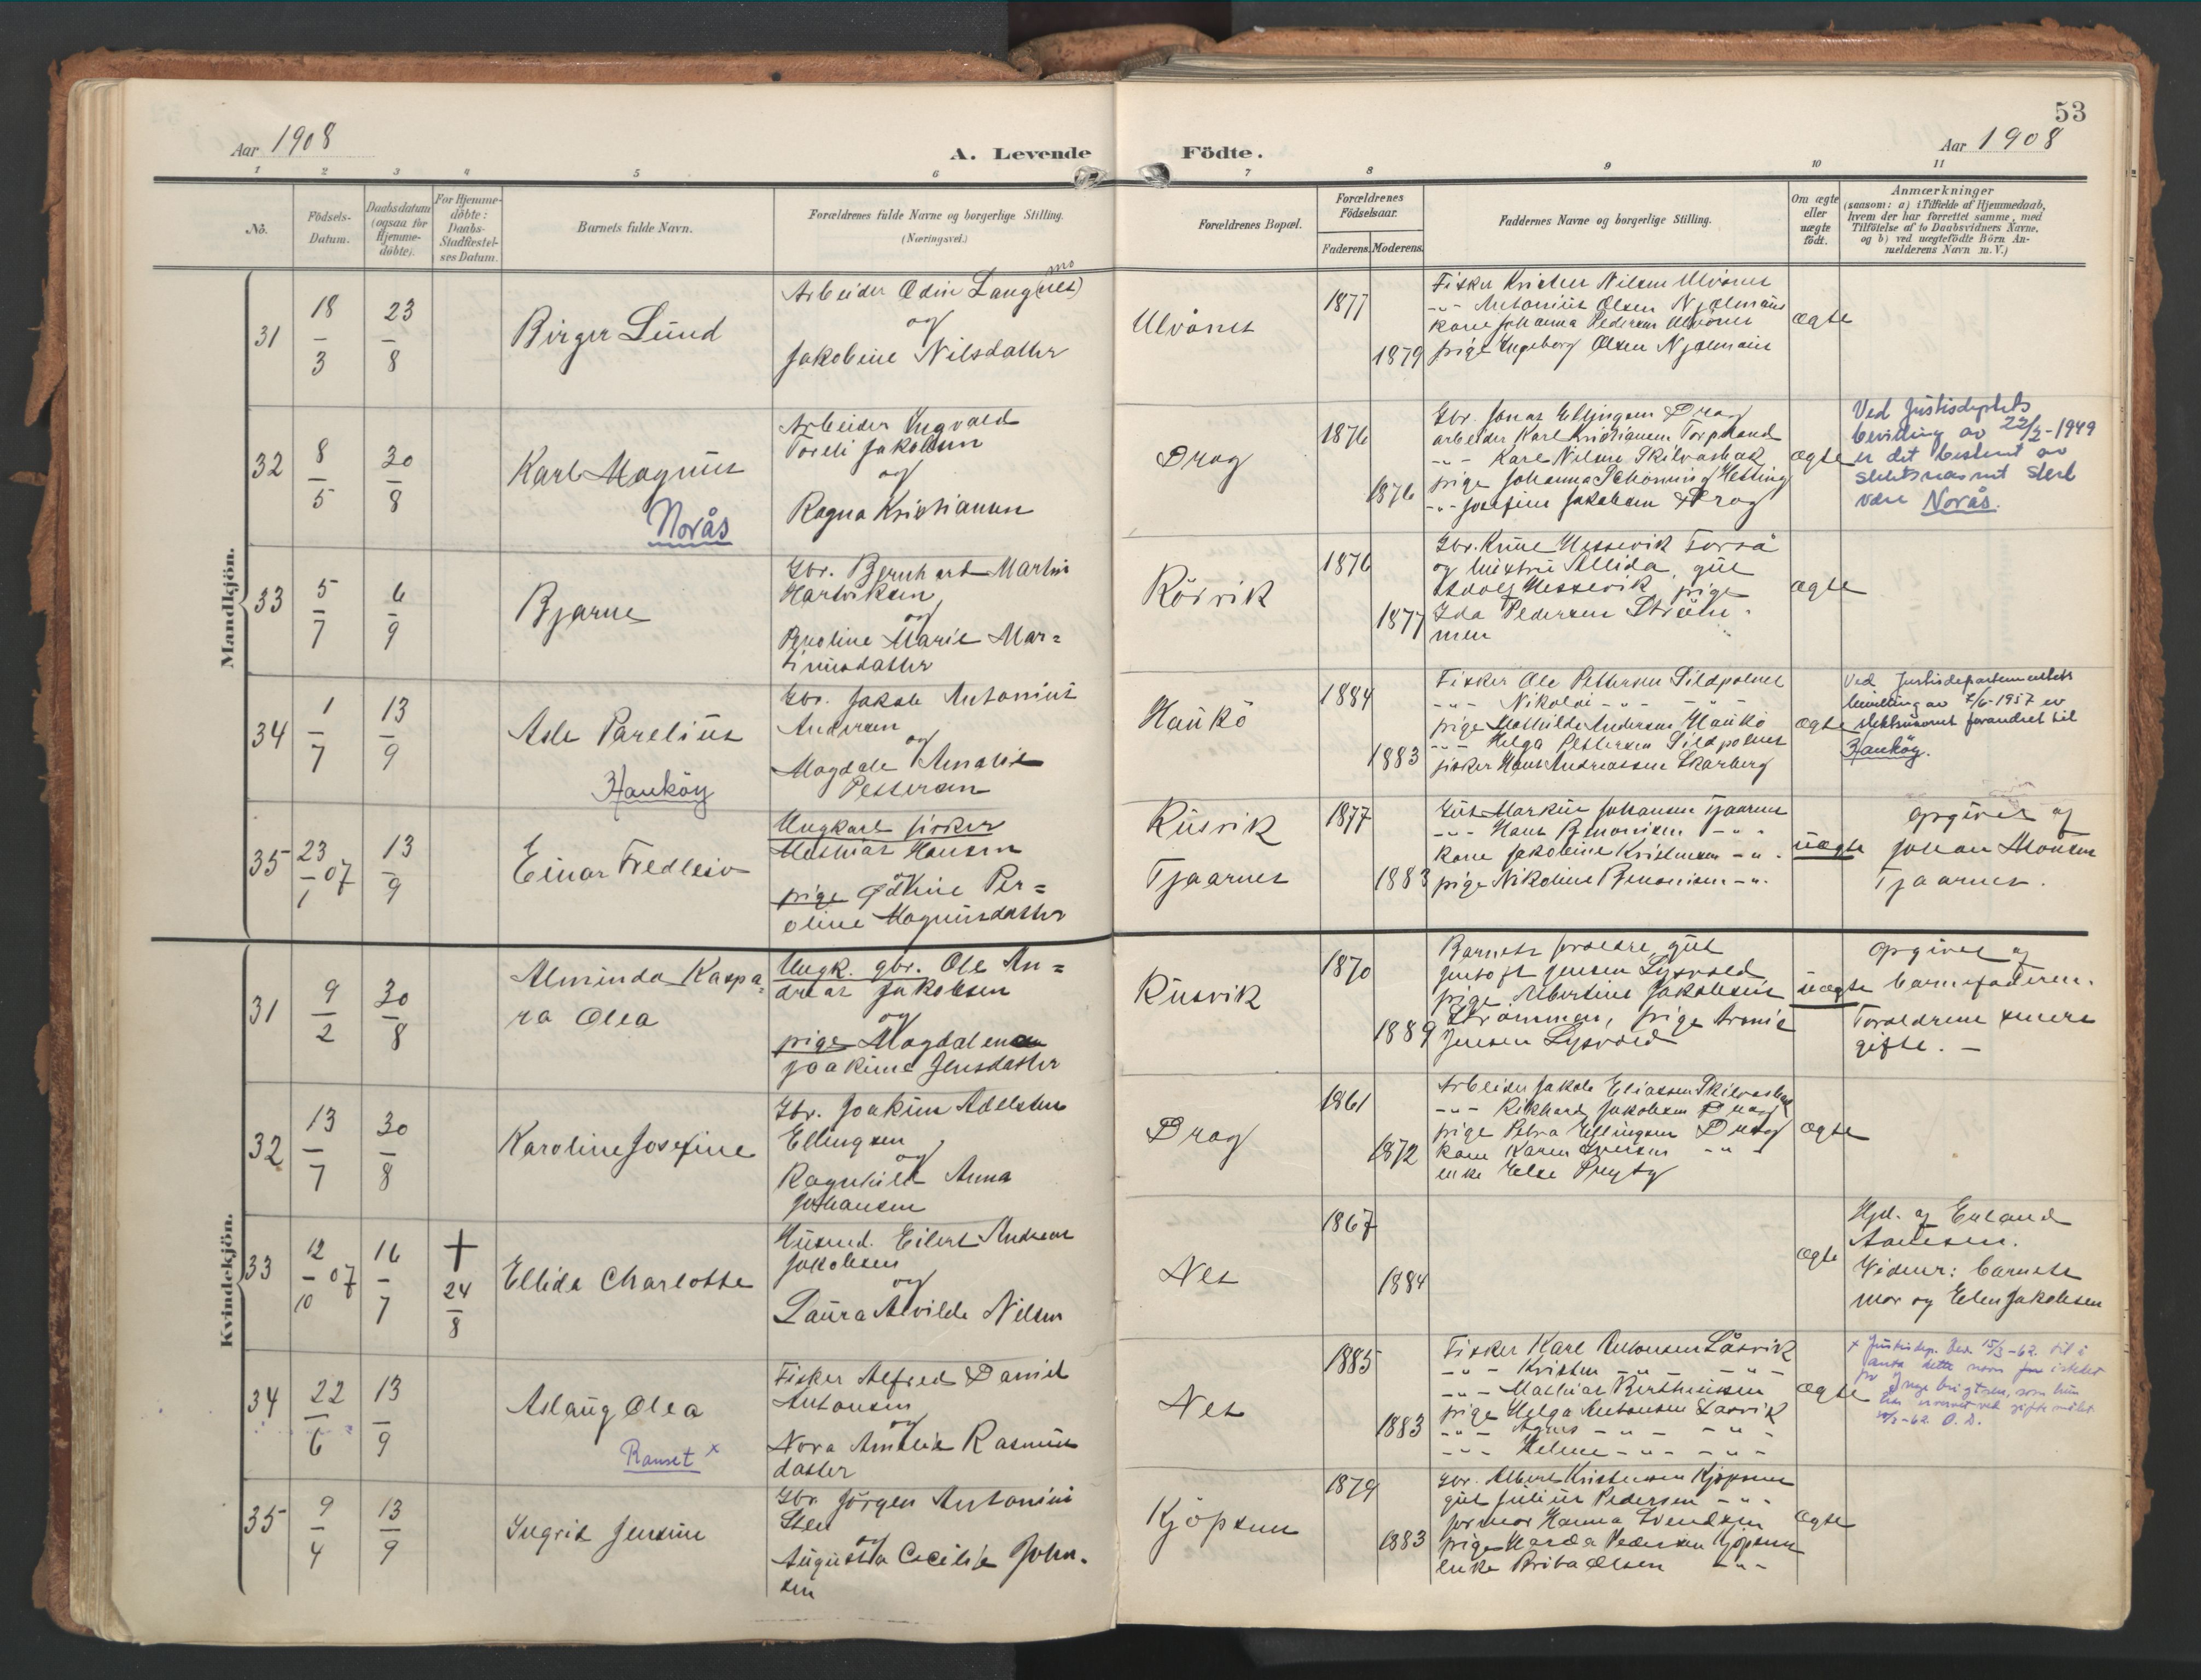 53
Aar 1908
A. Levende Födte.
Aar 1908
1 2 3 4 5 6 7 8 9 10 11
No.
Födsels-
Datum.
Daabsdatum
(ogsaa för
Hjemme-
döbte).
For Hjemme-
döbte:
Daabs-
Stadfæstel-
ses Datum.
Barnets fulde Navn.
Forældrenes fulde Navne og borgerlige Stilling.
(Næringsvei.)
Forældrenes Bopæl.
Forældrenes
Födselsaar.
Faderens. Moderens.
Faddernes Navne og borgerlige Stilling.
Om ægte
eller
uægte
födt.
Anmærkninger
(saasom: a) i Tilfælde af Hjemmedaab,
hvem der har forrettet samme, med
Tilföielse af to Daabsvidners Navne,
og b) ved uægtefödte Börn An-
melderens Navn m. V.)
Mandkjön.
31
18/3
23/8
Birger Lund
Arbeider Odin Lang(nes)
mo
og
Jakobine Nilsdatter
Ulvönes
1877
1879
Fisker Kristen Nilsen Ulvönes
-"- Antonius Olsen Njælmanis
kone Johanna Pedersen Ulvönes
pige Ingeborg Olsen Njælmanis
ægte
32
8/5
30/8
Karl Magnus
Norås
Arbeider Ingvald
Toreli Jakobsen
og
Ragna Kristiansen
Drag
1876
1876
Gbr. Jonas Ellingsen Drag
arbeider Karl Kristiansen Torpsand
-"- Karl Nilsen Skilvasbak
pige Johanna Johanning Helling
-"- Josefine Jakobsen Drag
ægte
Ved Justisdeptets
bevilling av 22/2-1949
er det bestemt av
slektsnavnet skal
være Norås.
33
5/7
6/9
Bjarne
Gbr. Bernhard Martin
Hartviksen
og
Pernoline Marie Mar=
tinusdatter
Rörvik
1876
1877
Gbr. Knut Hessevik Torså
og hustru Ellida, gut
Adolf Hessevik, pige
Ida Pedersen Ström-
men
ægte
34
1/7
13/9
Asle Parelius
Hauköy
Gbr. Jakob Antonius
Andersen
og
Magdale Amalie
Pettersen
Haukö
1884
1883
Fisker Ole Pettersen Sildpolnes
-"- Nikolai -"- -"-
pige Mathilde Andersen Haukö
-"- Helga Pettersen Sildpolnes
fisker Hans Andreassen Skarberg
ægte
Ved Justisdepartementets
bevilling av 7/6-1957 er
slektsnavnet forandret til
Hauköy.
35
23/1 07
13/9
Einar Fredleiv
Ungkarl fisker
Mathias Hansen
og
pige Jokine Per=
oline Magnusdatter
Rusvik
Tjaarnes
1877
1883
Gut Markus Johansen Tjaarnes
-"- Hans Benonisen -"-
kone Jakobine Kristensen -"-
pige Nikoline Benonisen -"-
uægte
Opgivet af
Johan Monsen
Tjaarnes.
Kvindekjön.
31
9/2
30/8
Alminda Kaspa=
ra Olea
Ungk. gbr. Ole An=
dreas Jakobsen
og
pige Magdalena
Joakima Jensdatter
Rusvik
1870
1889
Barnets foreldre, gut
Jentoft Jensen Lysvold
pige Albertine Jakobsen
Strömmen, pige Arnie
Jensen Lysvold
uægte
Opgivet af
barnefaderen.
Foreldrene senere
gifte. -
32
13/7
30/8
Karoline Josefine
Gbr. Joakim Adelsten
Ellingsen
og
Ragnhild Anna
Johansen
Drag
1861
1872
Arbeider Jakob Eliassen Skilvasbak
-"- Rikhard Jakobsen Drag
pige Petra Ellingsen Drag
kone Karen Iversen -"-
enke Else Prytz
ægte
33
12/10 07
16/7
+
24/8
Ellida Charlotte
Husmd. Eilert Andreas
Jakobsen
og
Laura Alvilde Nilsen
Nes
1867
1884
ægte
Hjd. af Erland
Aanesen.
Vidner: barnets
mor og Elen Jakobsen
34
22/6
13/9
Aslaug Olea
Ranset x
Fisker Alfred Daniel
Antonsen
og
Nora Amalie Rasmus
datter
Nes
1885
1883
Fisker Karl Antonsen Låsvik
-"- Kristen -"- -"-
-"- Mathias Berthinssen
pige Helga Antonsen Låsvik
-"- Agnes -"- -"-
-"- Helene -"- -"-
ægte
x Justisdep. bev. 15/3-62 til å
anta dette navn istedet
for Inge brigtsen, som hun
har ervervet ved giftermålet
O. D.
35
9/4
13/9
Ingrid Jensine
Gbr. Jörgen Antonius
Sten
og
Augusta Cecilie John-
sen
Kjöpsnes
1879
1883
Gbr. Albert Kristensen Kjöpsnes
gut Julius Pedersen -"-
jormor Hanna Svendsen
pige Harda Pedersen Kjöpsnes
enke Briba Olsen -"-
ægte